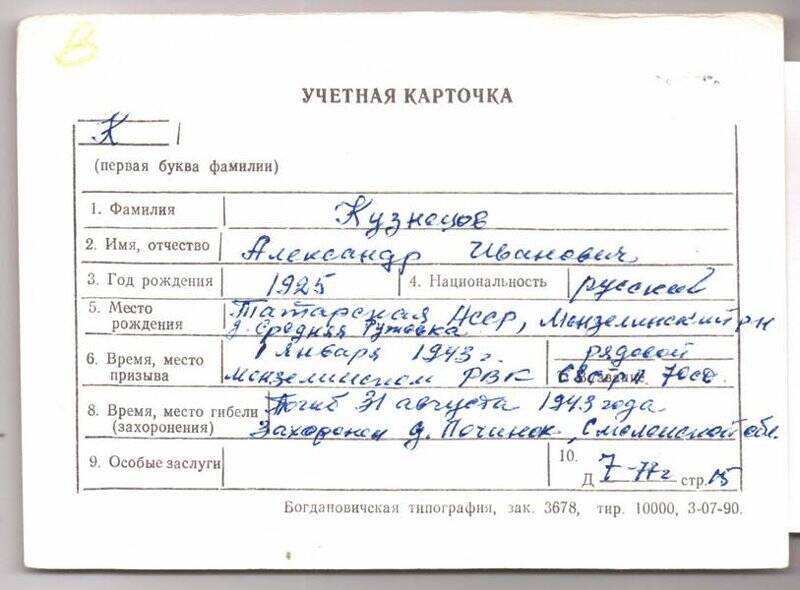 В
УЧЕТНАЯ КАРТОЧКА
К
(первая буква фамилии)
1. Фамилия Кузнецов
2. Имя, отчество Александр Иванович
3. Год рождения 1925 4. Национальность русский
5. Место рождения Татарская АССР, Мензелинский рн
д. Средняя
6. Время, место призыва 1 Января 1943 г. рядовой
Мензелинском РВК 68 стр п 70 сд.
8. Время, место гибели (захоронения) Погиб 31 августа 1943 года
Захоронен д. Починок, Смоленской обл.
9. Особые заслуги
10. Д 7-77г стр. 15
Богдановичская типография, зак. 3678, тир. 10000, 3-07-90.